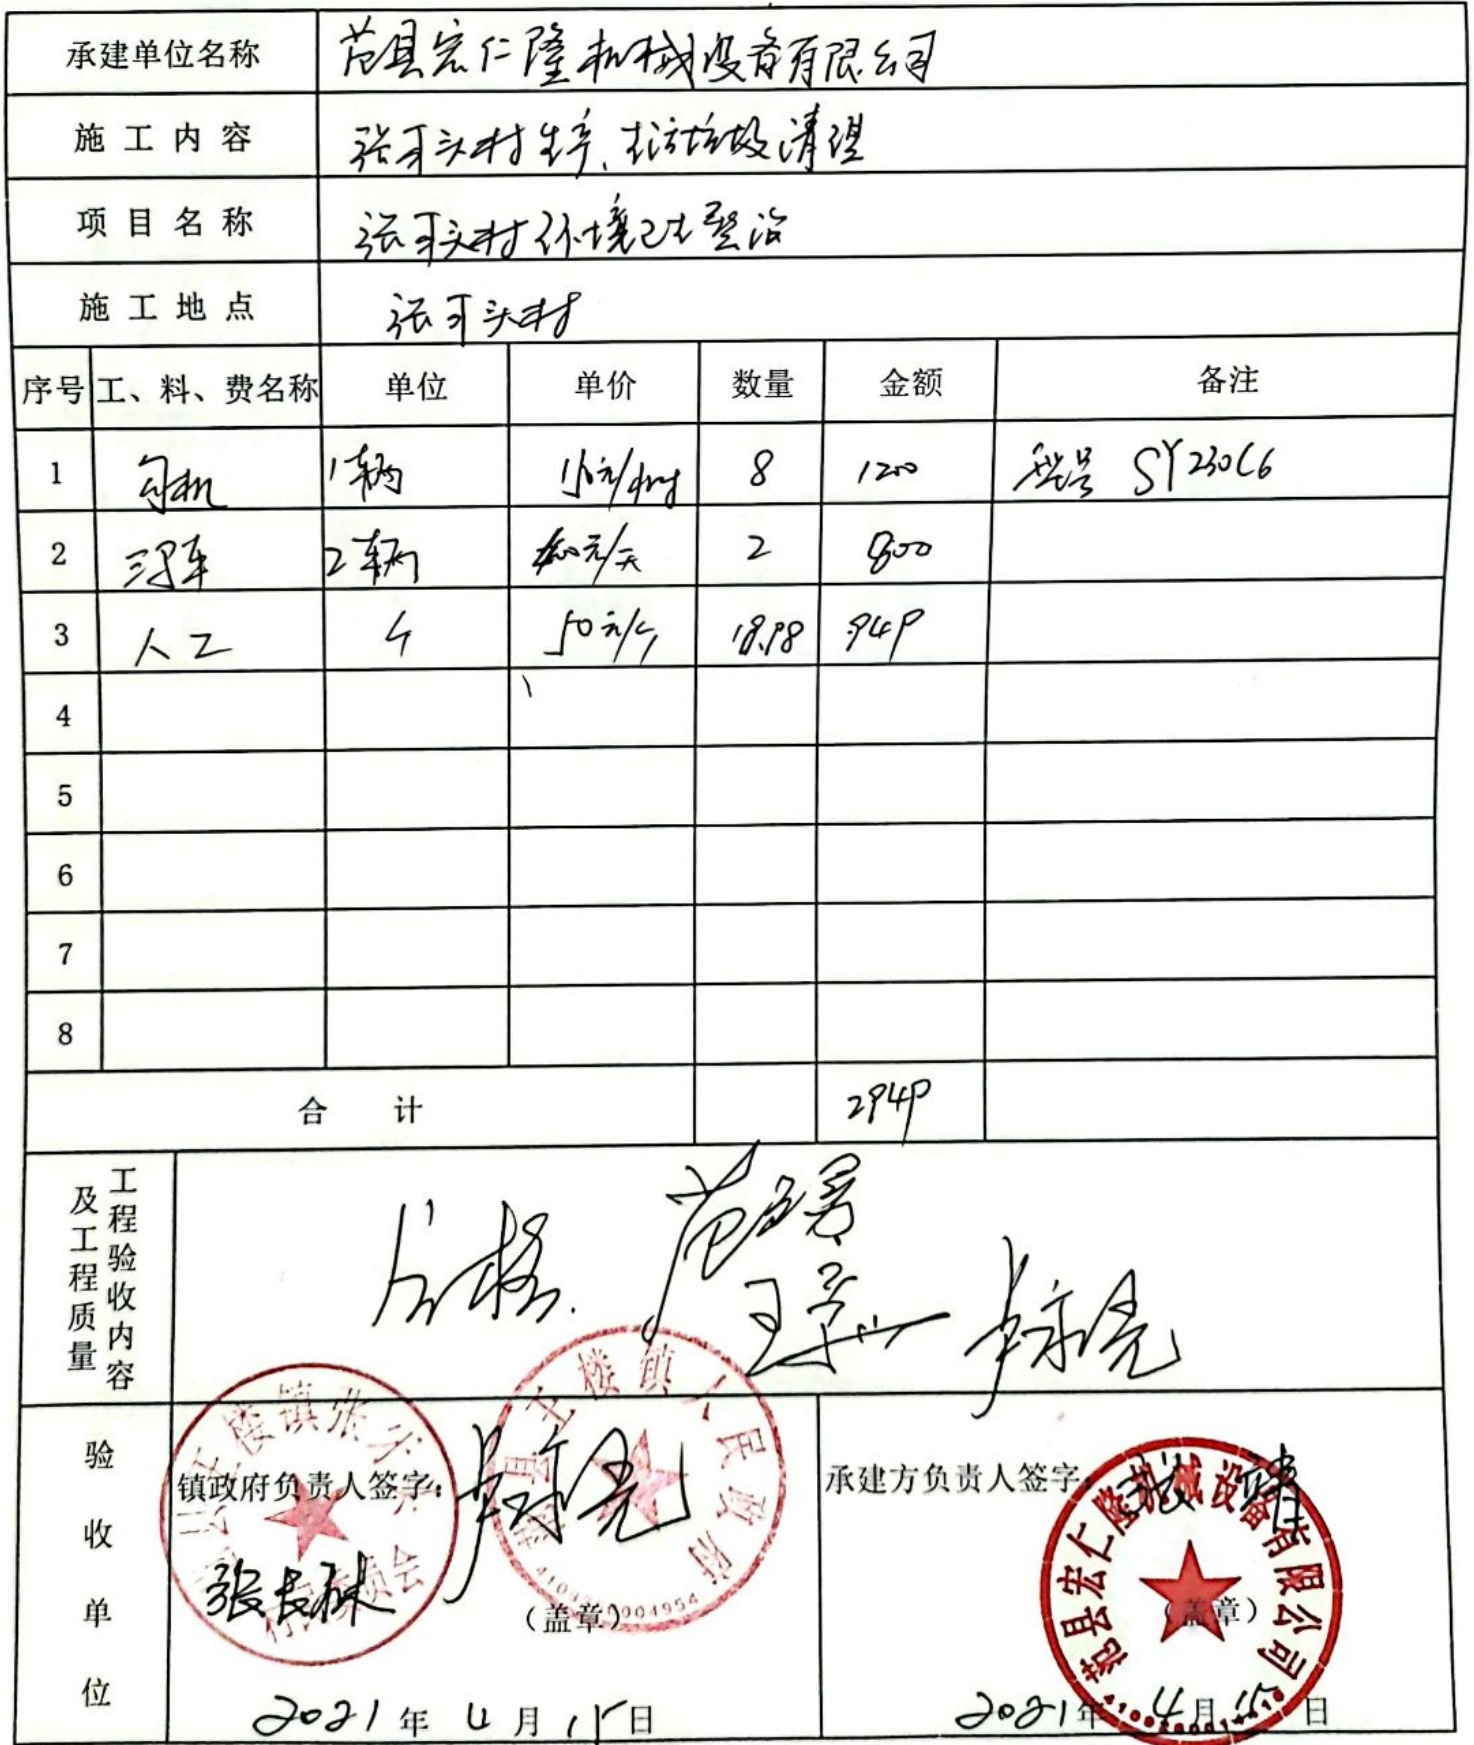 承建单位名称 范县宏仁隆机械设备有限公司
施工内容 张可头村生产、生活垃圾清理
项目名称 张可头村环境卫生整治
施工地点 张可头村
序号 工、料、费名称 单位 单价 数量 金额 备注
1 勾机 1辆 150元/小时 8 1200 型号 SY230C6
2 三子车 2辆 400元/天 2 800
3 人工 个 50元/个 18.98 949
4
5
6
7
8
合计 2949
工程验收内容及工程质量
合格.
验收单位
镇政府负责人签字:
张长林
(盖章)
2021年4月15日
承建方负责人签字
范县宏仁隆机械设备有限公司
(盖章)
2021年4月15日